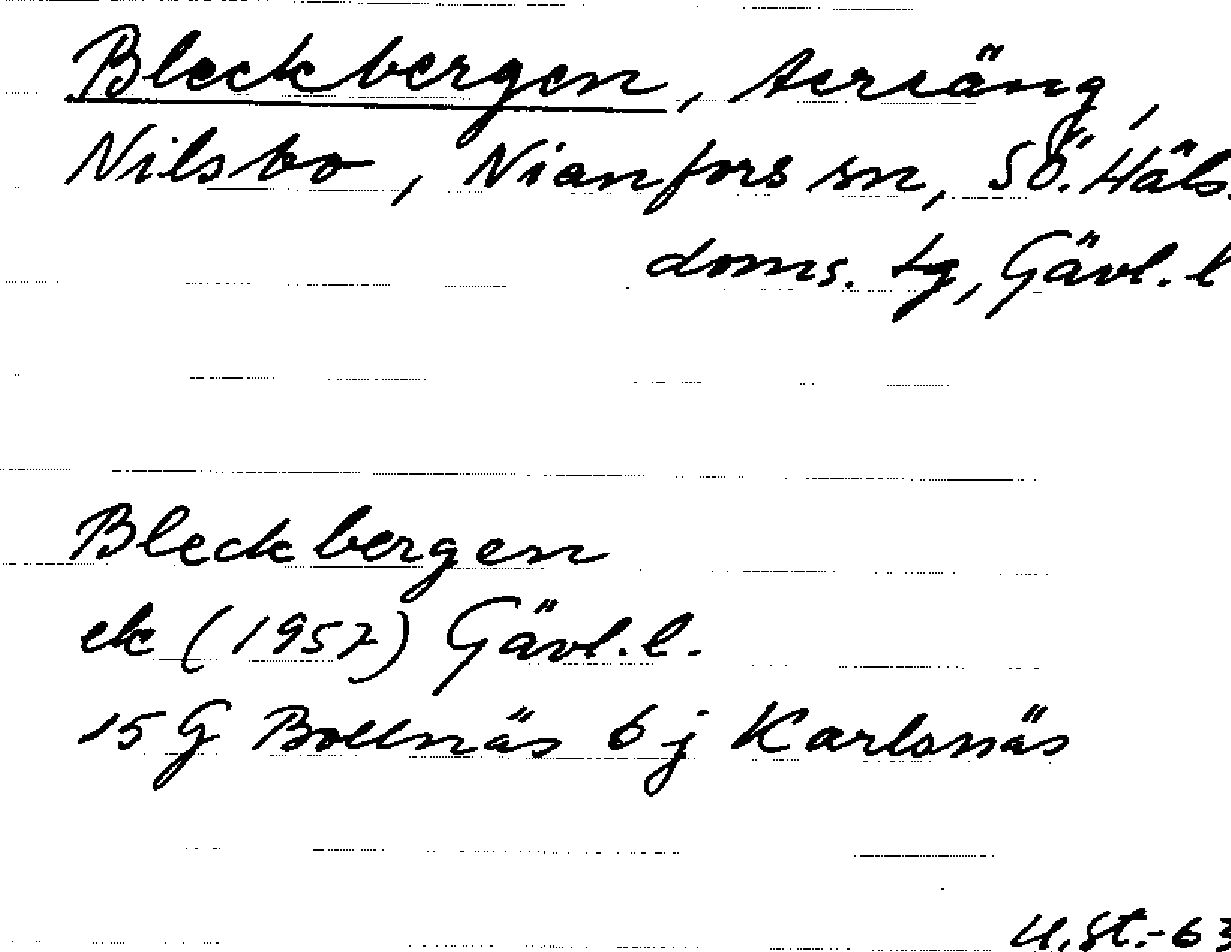 Bleckbergen, terräng,
Nilsbo, Nianfors sn, Sö. Häls.
doms. tg, Gävl. l
Bleckbergen
ek (1957) Gävl. l.
15 G Bollnäs 6 j Karlsnäs
U. St. -63